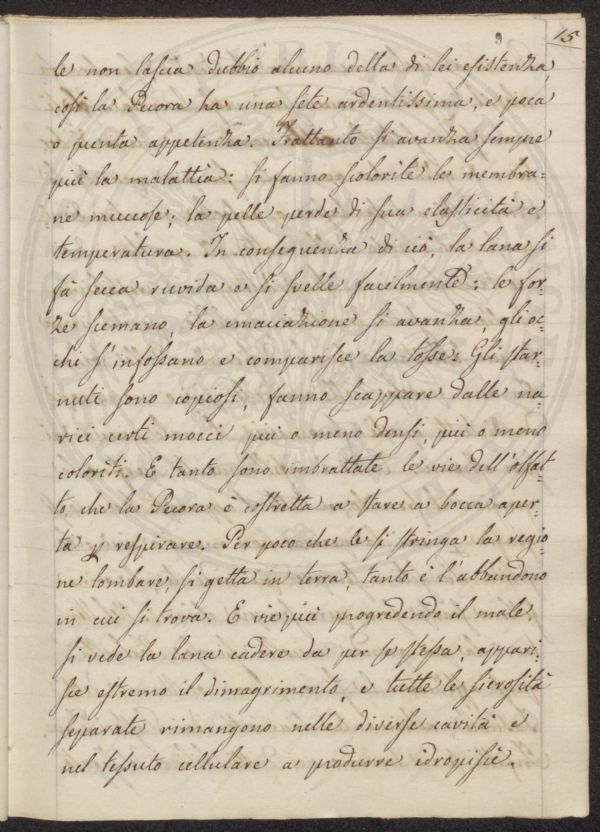 9 15
le non lascia dubbio alcuno della di lei esistenza,
così la Pecora ha una sete ardentissima, e poca
o punta appetenza. Frattanto si avanza sempre
più la malattia: si fanno scolorite le membra=
ne muccose; la pelle perde di sua elasticità e
temperatura. In conseguenza di ciò, la lana si
fà secca ruvida e si svelle facilmente; le for=
ze scemano, la emaciazione si avanza, gli oc=
chi s'infossano e comparisce la tosse. Gli star=
nuti sono copiosi, fanno scappare dalle na=
rici certi mocci più o meno densi, più o meno
coloriti. E tanto sono imbrattate le vie dell'olfat=
to che la Pecora è costretta a stare a bocca aper=
ta p respirare. Per poco che le si stringa la regio=
ne lombare, si getta in terra, tanto è l'abbandono
in cui si trova. E vie più progredendo il male,
si vede la lana cadere da per se stessa, appari=
sce estremo il dimagrimento, e tutte le sierosità
separate rimangono nelle diverse cavità e
nel tessuto cellulare a produrre idropisie.